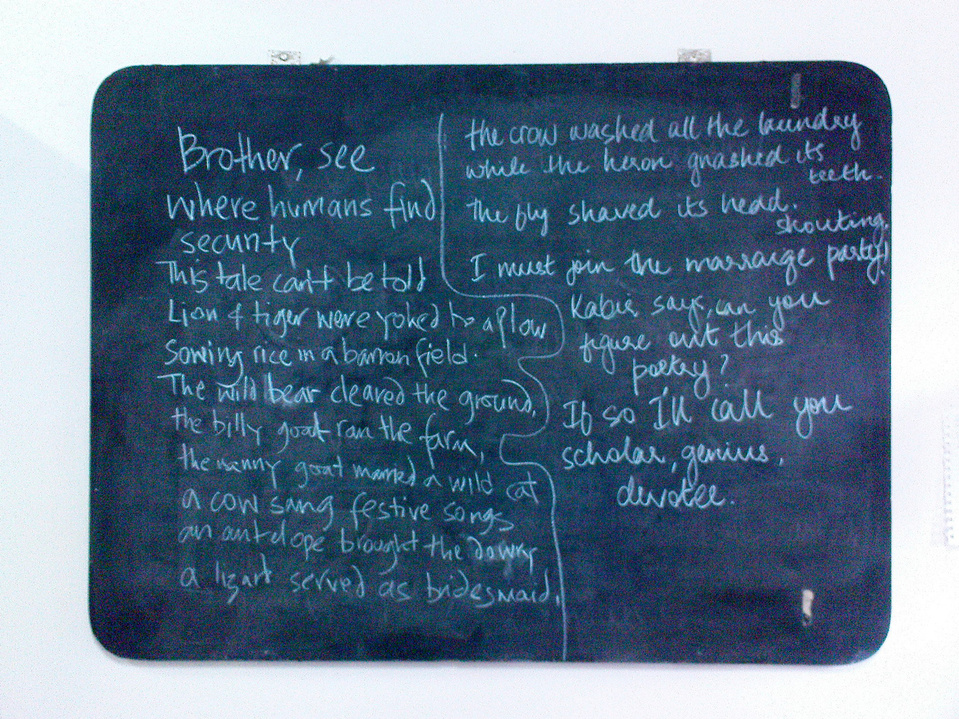 Brother, see
where humans find
security
This tale can't be told
Lion & tiger were yoked to a plow
Sowing rice in a barron field.
The wild bear cleared the ground,
the billy goat ran the farm,
the nanny goat married a wild cat
a cow sang festive songs
an antelope brought the dowry
a lizard served as bridesmaid.
the crow washed all the laundry
while the heron gnashed its
teeth.
the fly shaved its head.
shouting,
I must join the marraige party!
Kabir says, can you
figure out this
poetry?
If so I'll call you
scholar, genius,
devotee.